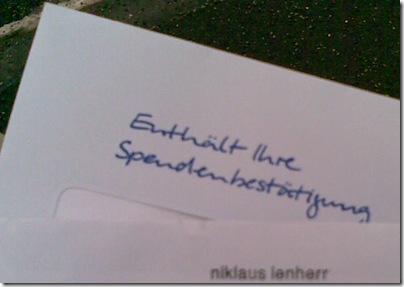 Enthält Ihre
Spendenbestätigung
niklaus lenherr